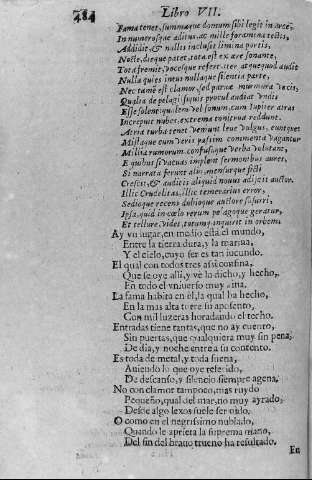 484 Libro VII.
Fama tenet, summaque domum sibi legit in arce,
Innumerosque aditus, ac mille foramina tectis,
Addidit, & nullis inclusit limina portis,
Nocte, dieque patet, tota est ex ære sonante,
Tota fremit, vocesque refert, iter atque quod audit
Nulla quies intus nullaque silentia parte,
Nec tamē est clamor, sed parvæ murmura vocis,
Qualia de pelagi siquis procul audiat vndis
Esse solent: qualem vel sonum, cum Iupiter atras
Increpuit nubes, extrema tonitrua reddunt.
Atria turba tenet veniunt leue vulgus, euntque
Mistaque cum veris passim commenta vagantur
Millia rumorum, confusaque verba volutant,
E quibus hi vacuas implent sermonibus aures,
Hi narrata ferunt alio, mensuraque ficti
Crescit, & auditis aliquid nouus adijcit auctor.
Illic Credulitas, illic temerarius error,
Seditioque recens dubioque auctore susurri,
Ipsa, quid in cœlo rerum pelagoque geratur,
Et tellure, videt, totumq; inquirit in orbem.
Ay vn lugar, en medio està el mundo,
Entre la tierra dura, y la marina,
Y el cielo, cuyo ser es tan iucundo.
El qual con todos tres assi confina,
Que se oye alli, y vè lo dicho, y hecho,
En todo el vniuerso muy aina.
La fama habita en èl, la qual ha hecho,
En la mas alta torre su aposento,
Con mil luzeras horadando el techo.
Entradas tiene tantas, que no ay cuento,
Sin puertas, que qualquiera muy sin pena,
De dia, y noche entre a su contento.
Es toda de metal, y toda suena,
Auiendo lo que oye referido,
De descanso, y silencio siempre agena,
No con clamor tampoco, mas ruydo
Pequeño, qual del mar, no muy ayrado,
Desde algo lexos suele ser oido.
O como en el negrissimo nublado,
Quando le aprieta la suprema mano,
Del fin del brauo trueno ha resultado.
En